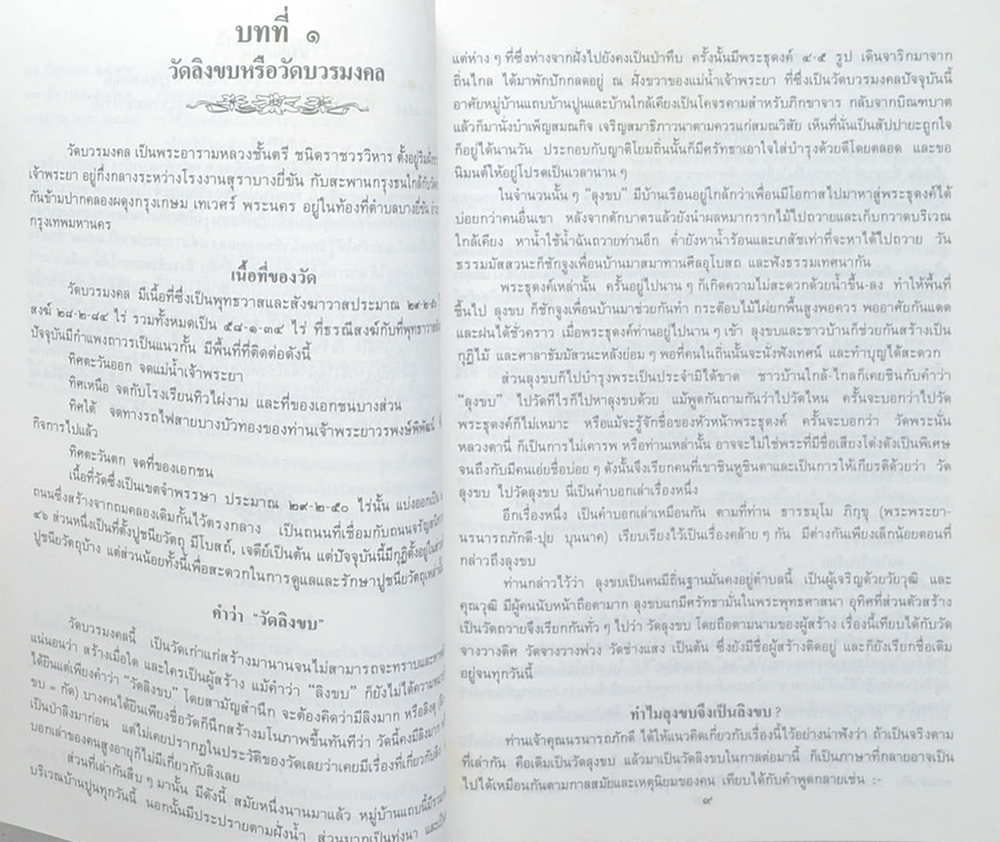 บทที่ ๑
วัดลิงขบหรือวัดบวรมงคล
วัดบวรมงคล เป็นพระอารามหลวงชั้นตรี ชนิดราชวรวิหาร ตั้งอยู่ริมฝั่ง
เจ้าพระยา อยู่กึ่งกลางระหว่างโรงงานสุราบางยี่ขัน กับสะพานกรุงธนใกล้กับวัด
กันข้ามปากคลองผดุงกรุงเกษม เทเวศร์ พระนคร อยู่ในท้องที่ตำบลบางยี่ขัน
กรุงเทพมหานคร
เนื้อที่ของวัด
วัดบวรมงคล มีเนื้อที่ซึ่งเป็นพุทธวาสและสังฆาวาสประมาณ
สงฆ์ ๒๘-๒-๘๔ ไร่ รวมทั้งหมดเป็น ๕๘-๑-๓๔ ไร่ ที่ธรณีสงฆ์กับที่พุทธาวาส
ปัจจุบันมีกำแพงถาวรเป็นแนวกั้น มีพื้นที่ที่ติดต่อดังนี้
ทิศตะวันออก จดแม่น้ำเจ้าพระยา
ทิศเหนือ จดกับโรงเรียนทิวไผ่งาม และที่ของเอกชนบางส่วน
ทิศใต้ จดทางรถไฟสายบางบัวทองของท่านเจ้าพระยาวรพงษ์พิพัฒน์
กิจการไปแล้ว
ทิศตะวันตก จดที่ของเอกชน
เนื้อที่วัดซึ่งเป็นเขตจำพรรษา ประมาณ ๒๙-๒-๕๐ ไร่นั้น แบ่งออกเป็น
ถนนซึ่งสร้างจากถมคลองเดิมกั้นไว้ตรงกลาง เป็นถนนที่เชื่อมกับถนนจรัญสนิทวงศ์
๔๖ ส่วนหนึ่งเป็นที่ตั้งปูชนียวัตถุ มีโบสถ์, เจดีย์เป็นต้น แต่ปัจจุบันนี้มีกุฏิตั้งอยู่ในส่วน
ปูชนียวัตถุบ้าง แต่ส่วนน้อยทั้งนี้เพื่อสะดวกในการดูแลและรักษาปูชนียวัตถุเหล่านั้น
คำว่า “วัดลิงขบ”
วัดบวรมงคลนี้ เป็นวัดเก่าแก่สร้างมานานจนไม่สามารถจะทราบและ
แน่นอนว่า สร้างเมื่อใด และใครเป็นผู้สร้าง แม้คำว่า “ลิงขบ” ก็ยังไม่ได้ความ
ได้ยินแต่เพียงคำว่า “วัดลิงขบ” โดยสามัญสำนึก จะต้องคิดว่ามีลิงมาก หรือลิงดุ
ขบ = กัด) บางคนได้ยินเพียงชื่อวัดก็นึกสร้างมโนภาพขึ้นทันทีว่า วัดนี้คงมีลิงมาก
เป็นป่าลิงมาก่อน แต่ไม่เคยปรากฏในประวัติของวัดเลยว่าเคยมีเรื่องที่เกี่ยวกับลิง
บอกเล่าของคนสูงอายุก็ไม่มีเกี่ยวกับลิงเลย
ส่วนที่เล่ากันสืบ ๆ มานั้น มีดังนี้ สมัยหนึ่งนานมาแล้ว หมู่บ้านแถบนี้มี
บริเวณบ้านปูนทุกวันนี้ นอกนั้นมีประปรายตามฝั่งน้ำ ส่วนมากเป็นทุ่งนา และ
แต่ห่าง ๆ ที่ซึ่งห่างจากฝั่งไปยังคงเป็นป่าทึบ ครั้งนั้นมีพระธุดงค์ ๔-๕ รูป เดินจาริกมาจาก
ถิ่นไกล ได้มาพักปักกลดอยู่ ณ ฝั่งขวาของแม่น้ำเจ้าพระยา ที่ซึ่งเป็นวัดบวรมงคลปัจจุบันนี้
อาศัยหมู่บ้านแถบบ้านปูนและบ้านใกล้เคียงเป็นโคจรคามสำหรับภิกขาจาร กลับจากบิณฑบาต
แล้วก็มานั่งบำเพ็ญสมณกิจ เจริญสมาธิภาวนาตามควรแก่สมณวิสัย เห็นที่นั้นเป็นสัปปายะถูกใจ
ก็อยู่ได้นานวัน ประกอบกับญาติโยมถิ่นนั้นก็มีศรัทธาเอาใจใส่บำรุงด้วยดีโดยตลอด และขอ
นิมนต์ให้อยู่โปรดเป็นเวลานาน ๆ
ในจำนวนนั้น ๆ “ลุงขบ” มีบ้านเรือนอยู่ใกล้กว่าเพื่อนมีโอกาสไปมาหาสู่พระธุดงค์ได้
บ่อยกว่าคนอื่นเขา หลังจากตักบาตรแล้วยังนำผลหมากรากไม้ไปถวายและเก็บกวาดบริเวณ
ใกล้เคียง หาน้ำใช้น้ำฉันถวายท่านอีก ค่ำยังหาน้ำร้อนและเภสัชเท่าที่จะหาได้ไปถวาย วัน
ธรรมมัสสวนะก็ชักจูงเพื่อนบ้านมาสมาทานศีลอุโบสถ และฟังธรรมเทศนากัน
พระธุดงค์เหล่านั้น ครั้นอยู่ไปนาน ๆ ก็เกิดความไม่สะดวกด้วยน้ำขึ้น-ลง ทำให้พื้นที่
ชื้นไป ลุงขบ ก็ชักจูงเพื่อนบ้านมาช่วยกันทำ กระต๊อบไม้ไผ่ยกพื้นสูงพอควร พออาศัยกันแดด
และฝนได้ชั่วคราว เมื่อพระธุดงค์ท่านอยู่ไปนาน ๆ เข้า ลุงขบและชาวบ้านก็ช่วยกันสร้างเป็น
กุฏิไม้ และศาลาธัมมัสวนะหลังย่อม ๆ พอที่คนในถิ่นนั้นจะนั่งฟังเทศน์ และทำบุญได้สะดวก
ส่วนลุงขบก็ไปบำรุงพระเป็นประจำมิได้ขาด ชาวบ้านใกล้-ไกลก็เคยชินกับคำว่า
“ลุงขบ” ไปวัดทีไรก็ไปหาลุงขบด้วย แม้พูดกันถามกันว่าไปวัดไหน ครั้นจะบอกว่าไปวัด
พระธุดงค์ก็ไม่เหมาะ หรือแม้จะรู้จักชื่อของหัวหน้าพระธุดงค์ ครั้นจะบอกว่า วัดพระนั่น
หลวงตานี่ ก็เป็นการไม่เคารพ หรือท่านเหล่านั้น อาจจะไม่ใช่พระที่มีชื่อเสียงโด่งดังเป็นพิเศษ
จนถึงกับมีคนเอ่ยชื่อบ่อย ๆ ดังนั้นจึงเรียกคนที่เขาชินหูชินตาและเป็นการให้เกียรติด้วยว่า วัด
ลุงขบ ไปวัดลุงขบ นี่เป็นคำบอกเล่าเรื่องหนึ่ง
อีกเรื่องหนึ่ง เป็นคำบอกเล่าเหมือนกัน ตามที่ท่าน ธารธมฺโม ภิกฺขุ (พระพระยา-
นรนารถภักดี-ปุย บุนนาค) เรียบเรียงไว้เป็นเรื่องคล้าย ๆ กัน มีต่างกันเพียงเล็กน้อยตอนที่
กล่าวถึงลุงขบ
ท่านกล่าวไว้ว่า ลุงขบเป็นคนมีถิ่นฐานมั่นคงอยู่ตำบลนี้ เป็นผู้เจริญด้วยวัยวุฒิ และ
คุณวุฒิ มีผู้คนนับหน้าถือตามาก ลุงขบแกมีศรัทธามั่นในพระพุทธศาสนา อุทิศที่ส่วนตัวสร้าง
เป็นวัดถวายจึงเรียกกันทั่ว ๆ ไปว่า วัดลุงขบ โดยถือตามนามของผู้สร้าง เรื่องนี้เทียบได้กับวัด
จางวางดิศ วัดจางวางพ่วง วัดช่างแสง เป็นต้น ซึ่งยังมีชื่อผู้สร้างติดอยู่ และก็ยังเรียกชื่อเดิม
อยู่จนทุกวันนี้
ทำไมลุงขบจึงเป็นลิงขบ ?
ท่านเจ้าคุณนรนารถภักดี ได้ให้แนวคิดเกี่ยวกับเรื่องนี้ไว้อย่างน่าฟังว่า ถ้าเป็นจริงตาม
ที่เล่ากัน คือเดิมเป็นวัดลุงขบ แล้วมาเป็นวัดลิงขบในกาลต่อมานี้ ก็เป็นภาษาที่กลายอาจเป็น
ไปได้เหมือนกันตามกาลสมัยและเหตุนิยมของคน เทียบได้กับคำพูดกลายเช่น :-
๙